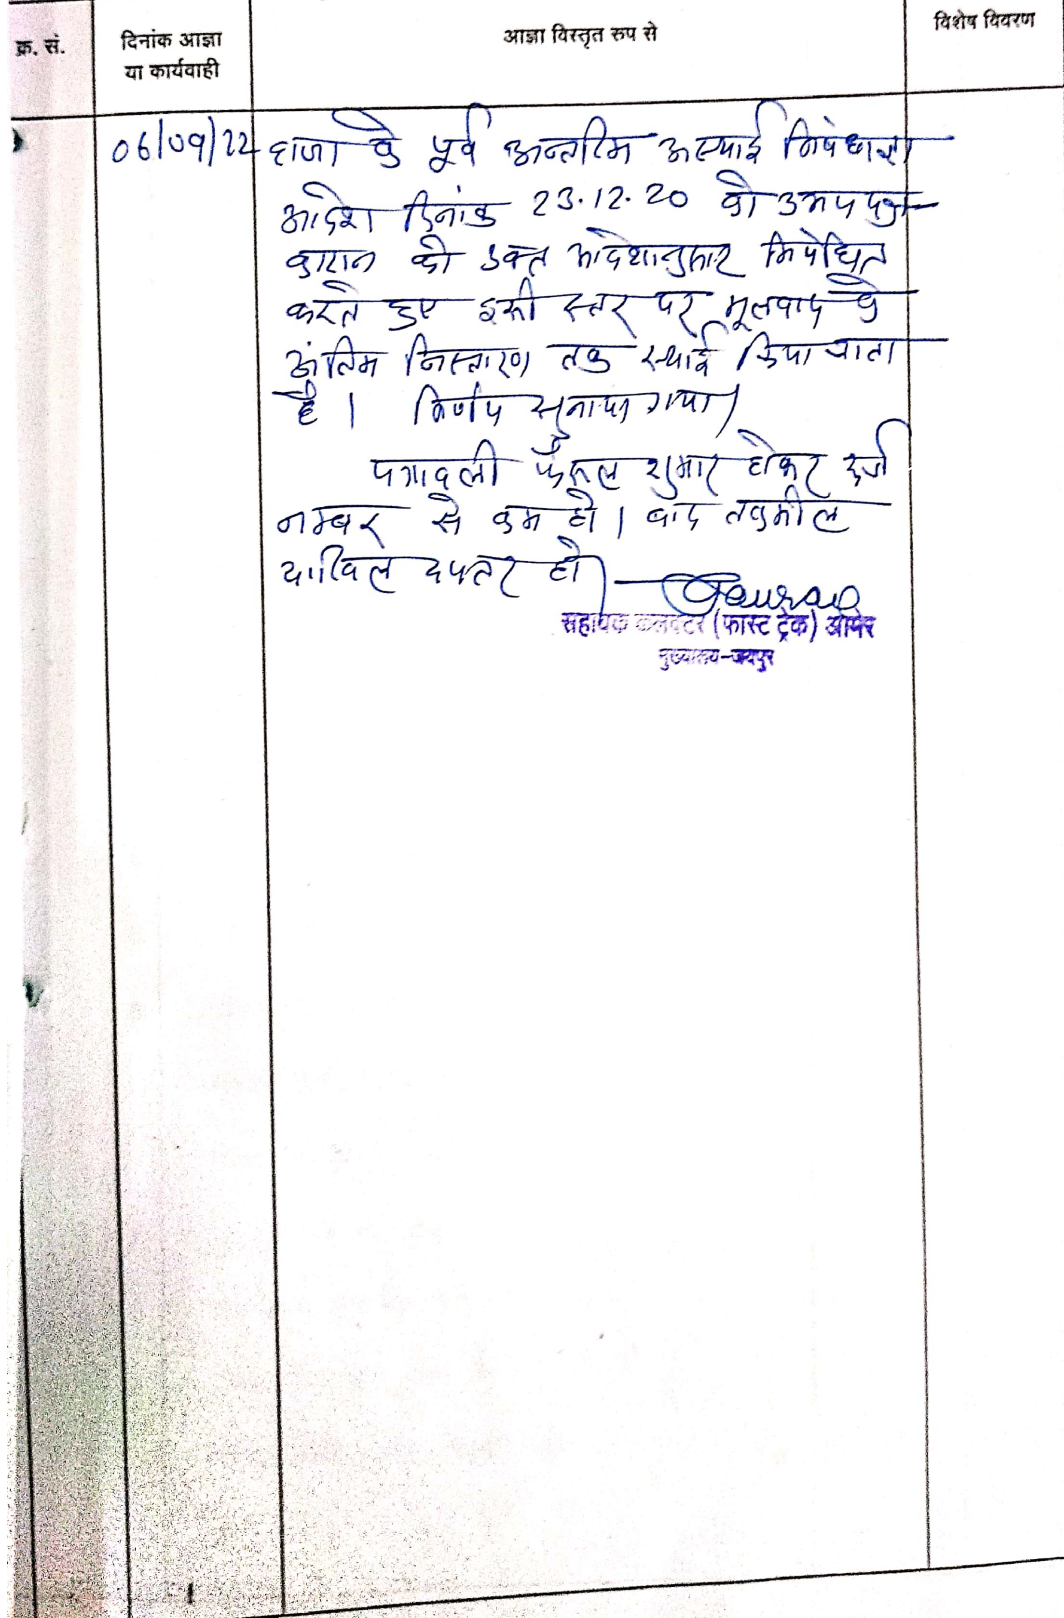 क्र. सं.
दिनांक आज्ञा
या कार्यवाही
आज्ञा विस्तृत रुप से
विशेष विवरण
06/09/22 हाजा के पूर्व अन्तरिम अस्थाई निषेधाज्ञा
आदेश दिनांक 23.12.20 को उभयपक्ष
कारान को उक्त आदेशानुसार निषेधित
करते हुए इसी स्तर पर मूलवाद के
अंतिम निस्तारण तक स्थाई किया जाता
है। निर्णय सुनाया गया।
पत्रावली फैसल शुमार होकर दर्ज
नम्बर से कम हो। बाद तकमील
दाखिल दफ्तर हो।
सहायक कलक्टर (फास्ट ट्रेक) आमेर
मुख्यालय-जयपुर